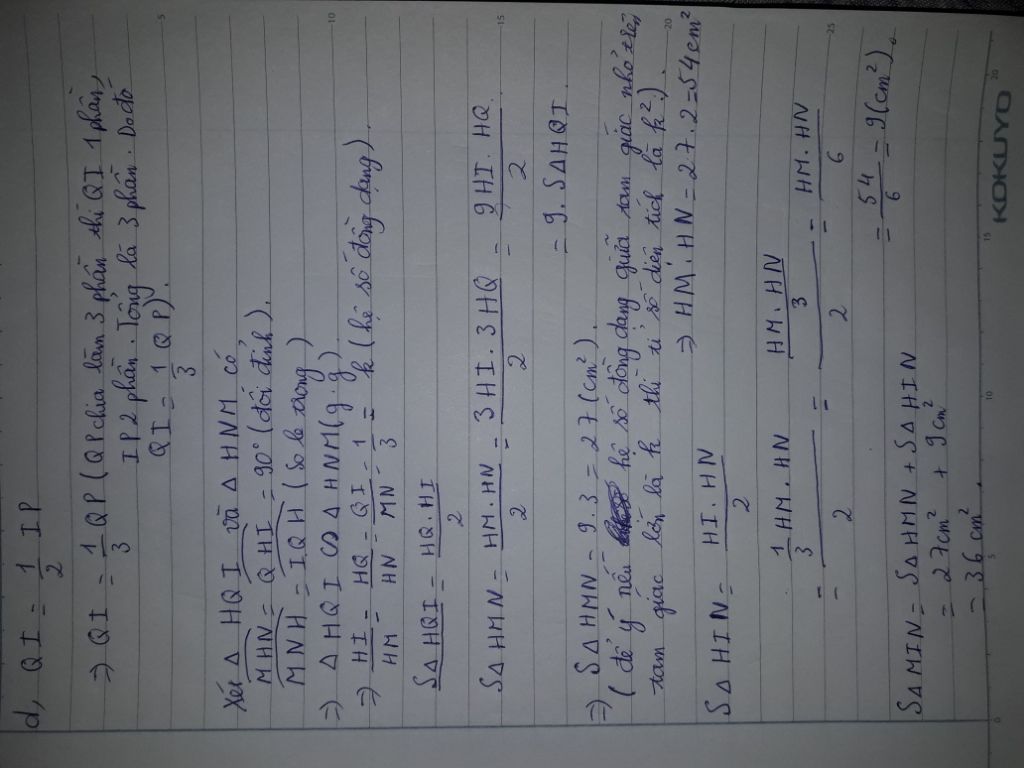 d, QI = 1/2 IP
⇒ QI = 1/3 QP (QP chia làm 3 phần thì QI 1 phần,
IP 2 phần. Tổng là 3 phần. Do đó
QI = 1/3 QP).
Xét Δ HQI và Δ HNM có
MHN = QHI = 90° (đối đỉnh).
MNH = IQH (So le trong)
⇒ Δ HQI ∽ Δ HNM (g.g).
⇒ HI/HM = HQ/HN = QI/MN = 1/3 = k (hệ số đồng dạng).
SΔHQI = HQ.HI/2
SΔHMN = HM.HN/2 = 3HI.3HQ/2 = 9HI.HQ/2.
= 9.SΔHQI.
⇒ SΔHMN = 9.3 = 27 (cm²).
(để ý nếu hệ số đồng dạng giữa tam giác nhỏ trên
tam giác lớn là k thì tỉ số diện tích là k².).
⇒ HM.HN = 27.2 = 54cm²
SΔHIN = HI.HN/2
= 1/3 HM.HN/2 = HM.HN/3/2 = HM.HN/6
= 54/6 = 9 (cm²).
SΔMIN = SΔHMN + SΔHIN
= 27cm² + 9cm²
= 36cm².
5
10
15
20
25
0
5
10
15
20
KOKUYO